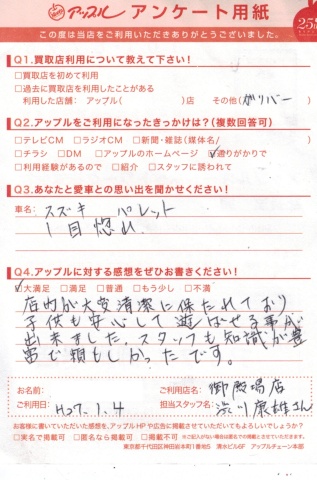 アップル アンケート用紙
25th
この度は当店をご利用いただきありがとうございました。
Q1.買取店利用について教えて下さい！
□買取店を初めて利用
□過去に買取店を利用したことがある
利用した店舗：アップル（ ）店 その他（ガリバー ）
Q2.アップルをご利用になったきっかけは？（複数回答可）
□テレビCM □ラジオCM □新聞・雑誌（媒体名 ）
□チラシ □DM □アップルのホームページ ☑通りがかりで
□利用経験があるので □紹介 □スタッフに誘われて
Q3.あなたと愛車との思い出を聞かせください！
車名：スズキ パレット
1目惚れ
Q4.アップルに対する感想をぜひお書きください！
☑大満足 □満足 □普通 □もう少し □不満
店内が大変清潔に保たれており
子供も安心して遊ばせる事が
出来ました。スタッフも知識が豊
富で頼もしかったです。
お名前： ご利用店名：御殿場店
ご利用日：H27.1.4 担当スタッフ名：渋川康雄さん
お客様に書いていただいた感想を、アップルHPや広告に掲載させていただいてもよろしいでしょうか？
□実名で掲載可 □匿名なら掲載可 □掲載不可 ※ご記入がない場合は匿名での掲載とさせていただきます。
東京都千代田区神田岩本町1番地5 清水ビル6F アップルチェーン本部